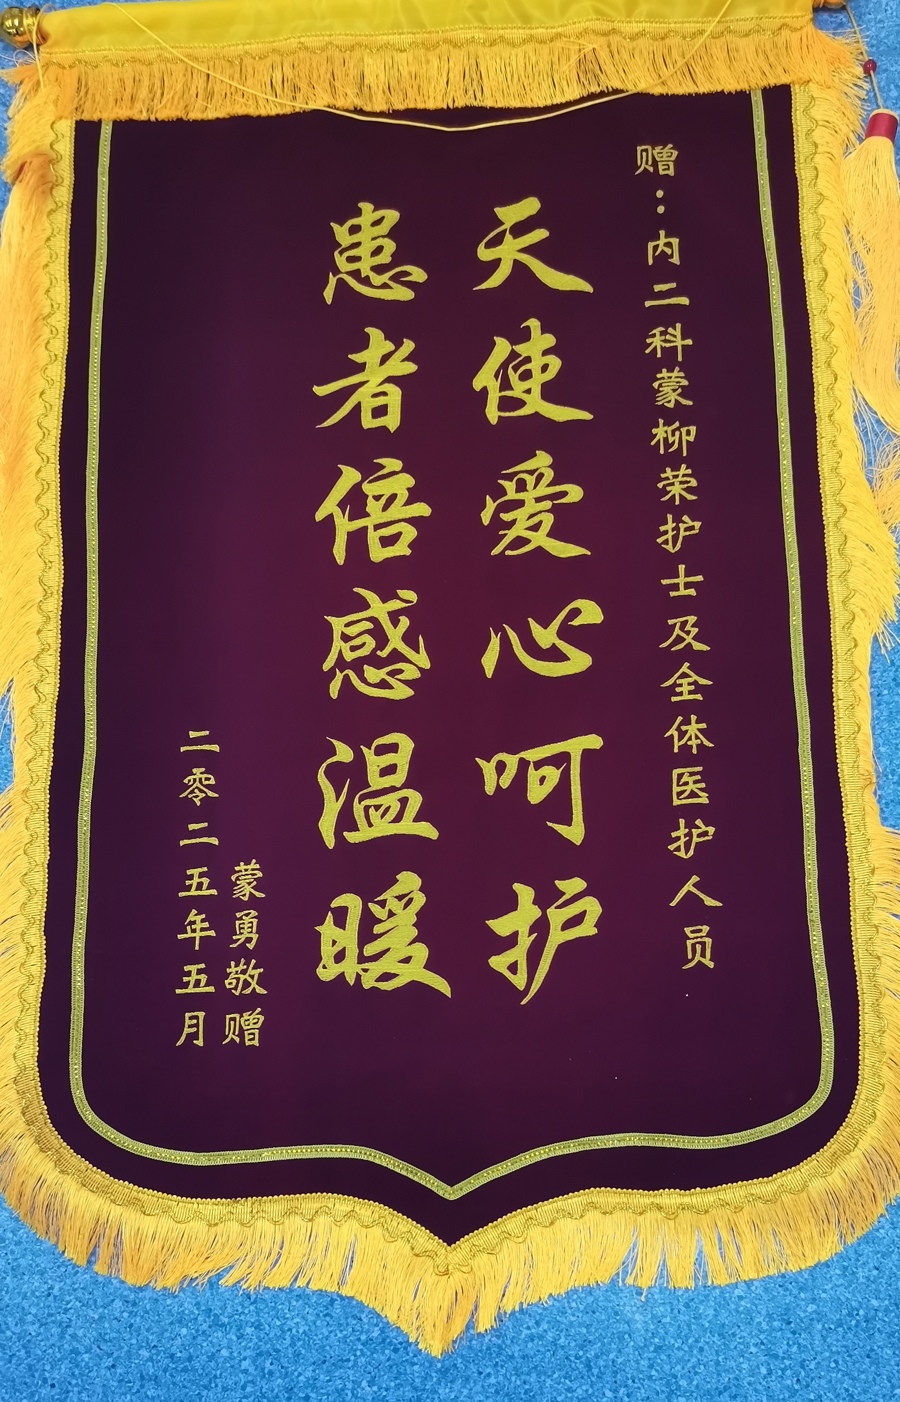 赠：内二科蒙柳荣护士及全体医护人员
天使爱心呵护
患者倍感温暖
蒙勇敬赠
二零二五年五月